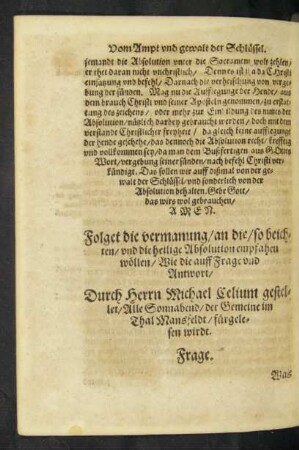 Vom Ampt vnd gewalt der Schlüssel.
jemandt die Absolution vnter die Sacrament wolt zehlen/
er thet daran nicht vnchristlich/ Dennoch ist ja da Christi
einsatzung vnd befehl/ Darnach die verheissung von verge-
bung der sünden. Mag nu die Aufflegunge der Hende/ aus
dem brauch Christi vnd seiner Aposteln genommen/ zu erstat-
tung des zeichens/ oder mehr zur
der
Absolution/ nützlich darbey gebraucht werden/ doch mit dem
verstande Christlicher freyheit/ da gleich keine aufflegunge
der hende geschehe/ das dennoch die Absolution recht/ krefftig
und vollkommen sey/ da man dem Bußfertigen aus Gottes
Wort/ vergebung seiner sünden/ nach befehl Christi ver-
kündige. Das sollen wir auff dißmal von der ge-
walt der Schlüssel/ vnd sonderlich von der
Absolution behalten. Gebe Gott/
das wirs wol gebrauchen/
A M E N.
Folget die vermanung/ an die/ so beich-
ten/ vnd die heilige Absolution empfahen
wöllen/ Wie die auff Frage vnd
Antwort/
Durch Herrn Michael Celium gestel-
let/ Alle Sonnabend/ der Gemeine im
Thal Mansfeldt/ fürgele-
sen wirdt.
Frage.
Was